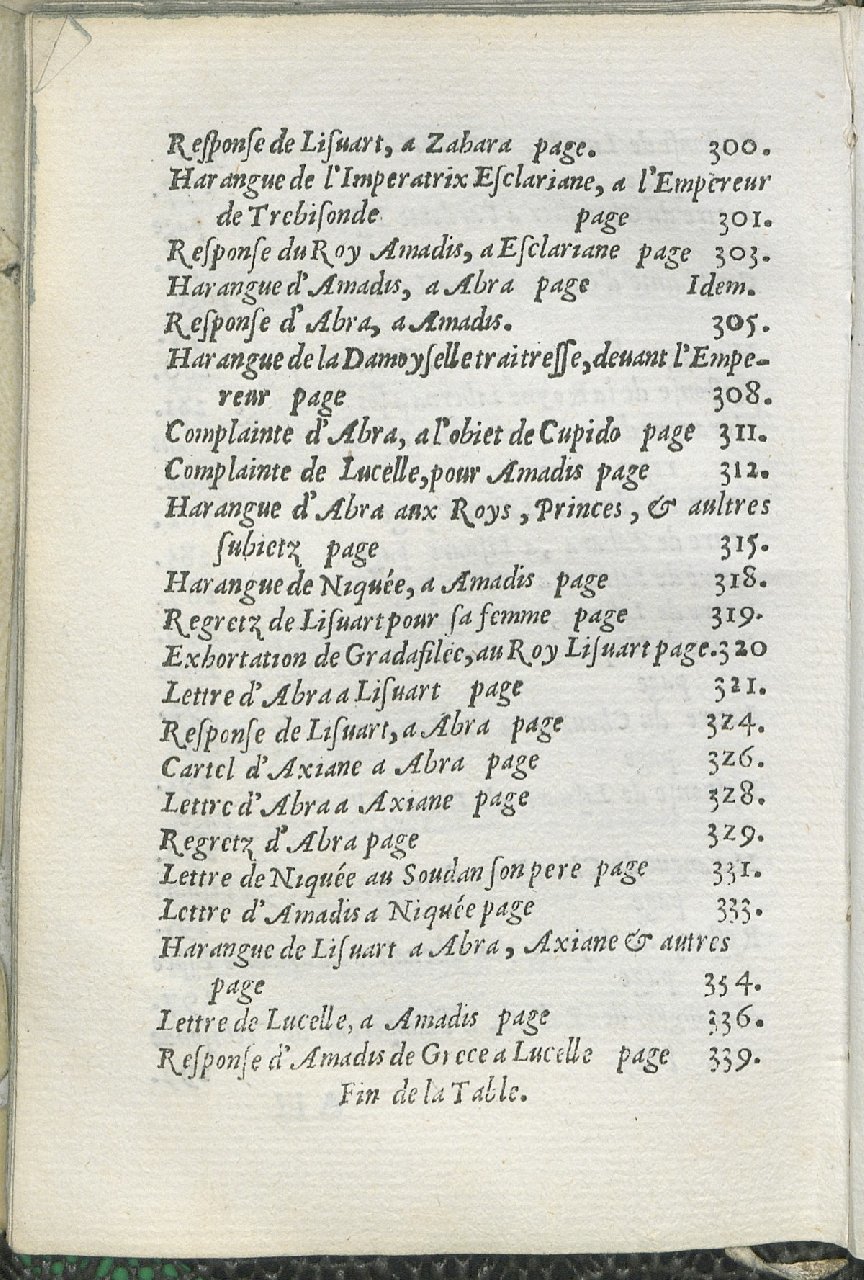 Reſponſe de Liſuart, a Zahara page. 300.
Harangue de l'Imperatrix Eſclariane, a l'Empereur
de Trebiſonde page 301.
Reſponſe du Roy Amadis, a Eſclariane page 303.
Harangue d'Amadis, a Abra page Idem.
Reſponſe d'Abra, a Amadis. 305.
Harangue de la Damoyſelle traitreſſe, deuant l'Empe-
reur page 308.
Complainte d'Abra, a l'obiet de Cupido page 311.
Complainte de Lucelle, pour Amadis page 312.
Harangue d'Abra aux Roys, Princes, & aultres
ſubietz page 315.
Harangue de Niquée, a Amadis page 318.
Regretz de Liſuart pour ſa femme page 319.
Exhortation de Gradafilée, au Roy Liſuart page. 320
Lettre d'Abra a Liſuart page 321.
Reſponſe de Liſuart, a Abra page 324.
Cartel d'Axiane a Abra page 326.
Lettre d'Abra a Axiane page 328.
Regretz d'Abra page 329.
Lettre de Niquée au Soudan ſon pere page 331.
Lettre d'Amadis a Niquée page 333.
Harangue de Liſuart a Abra, Axiane & autres
page 354.
Lettre de Lucelle, a Amadis page 336.
Reſponſe d'Amadis de Grece a Lucelle page 339.
Fin de la Table.